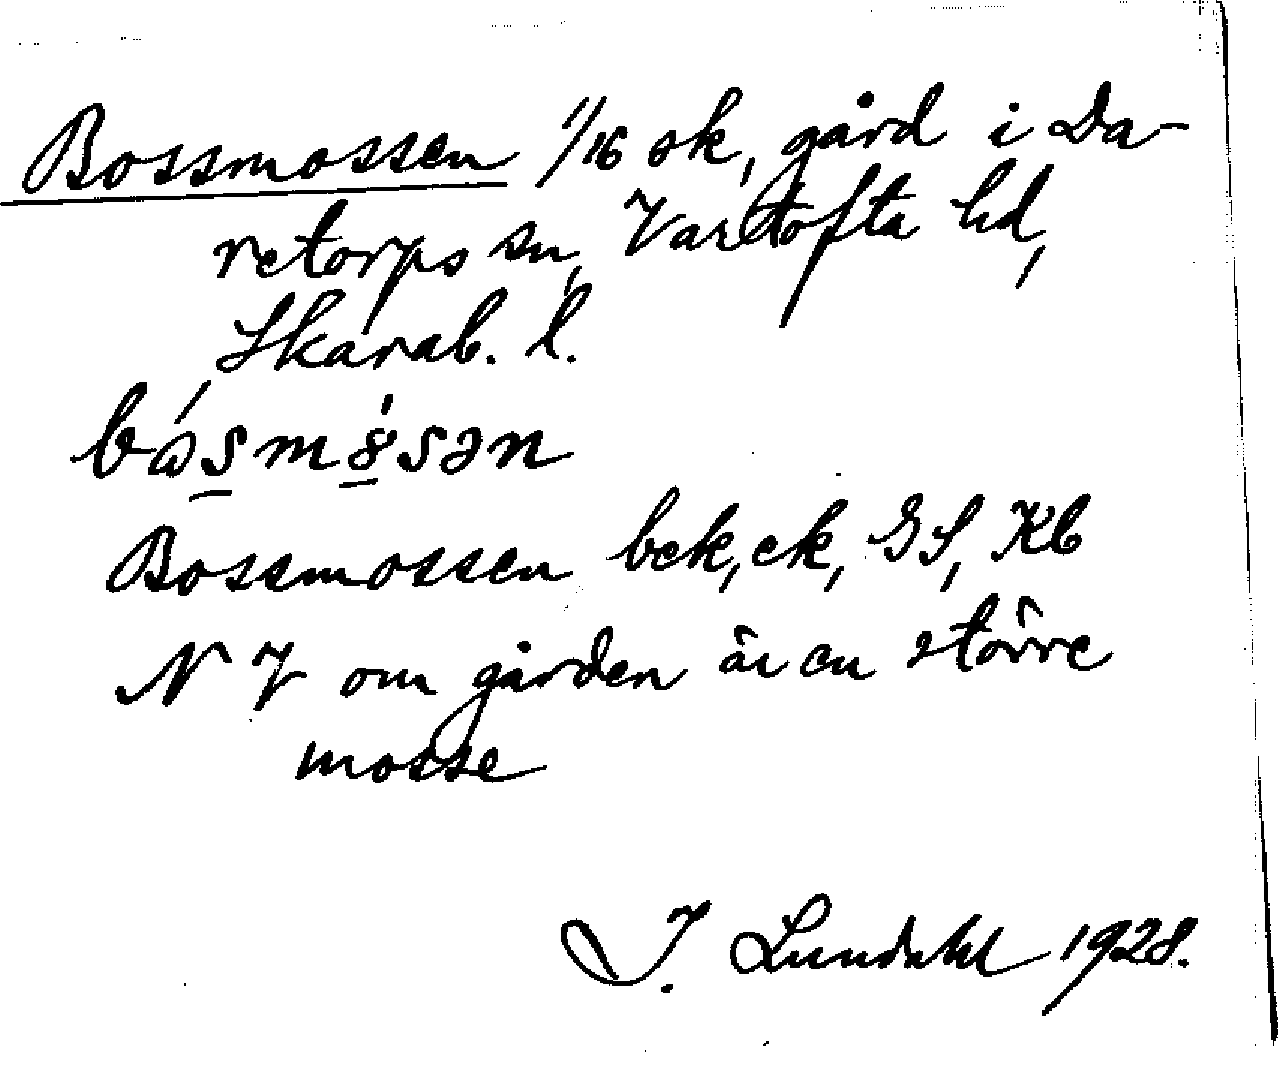 Bossmossen 1/16 sk, gård i Da-
retorps sn, Vartofta hd,
Skarab. l.
bósmȣ́sən
Bossmossen bek, ek, GS, Kb
N V om gården är en större
mosse
I. Lundahl 1928.